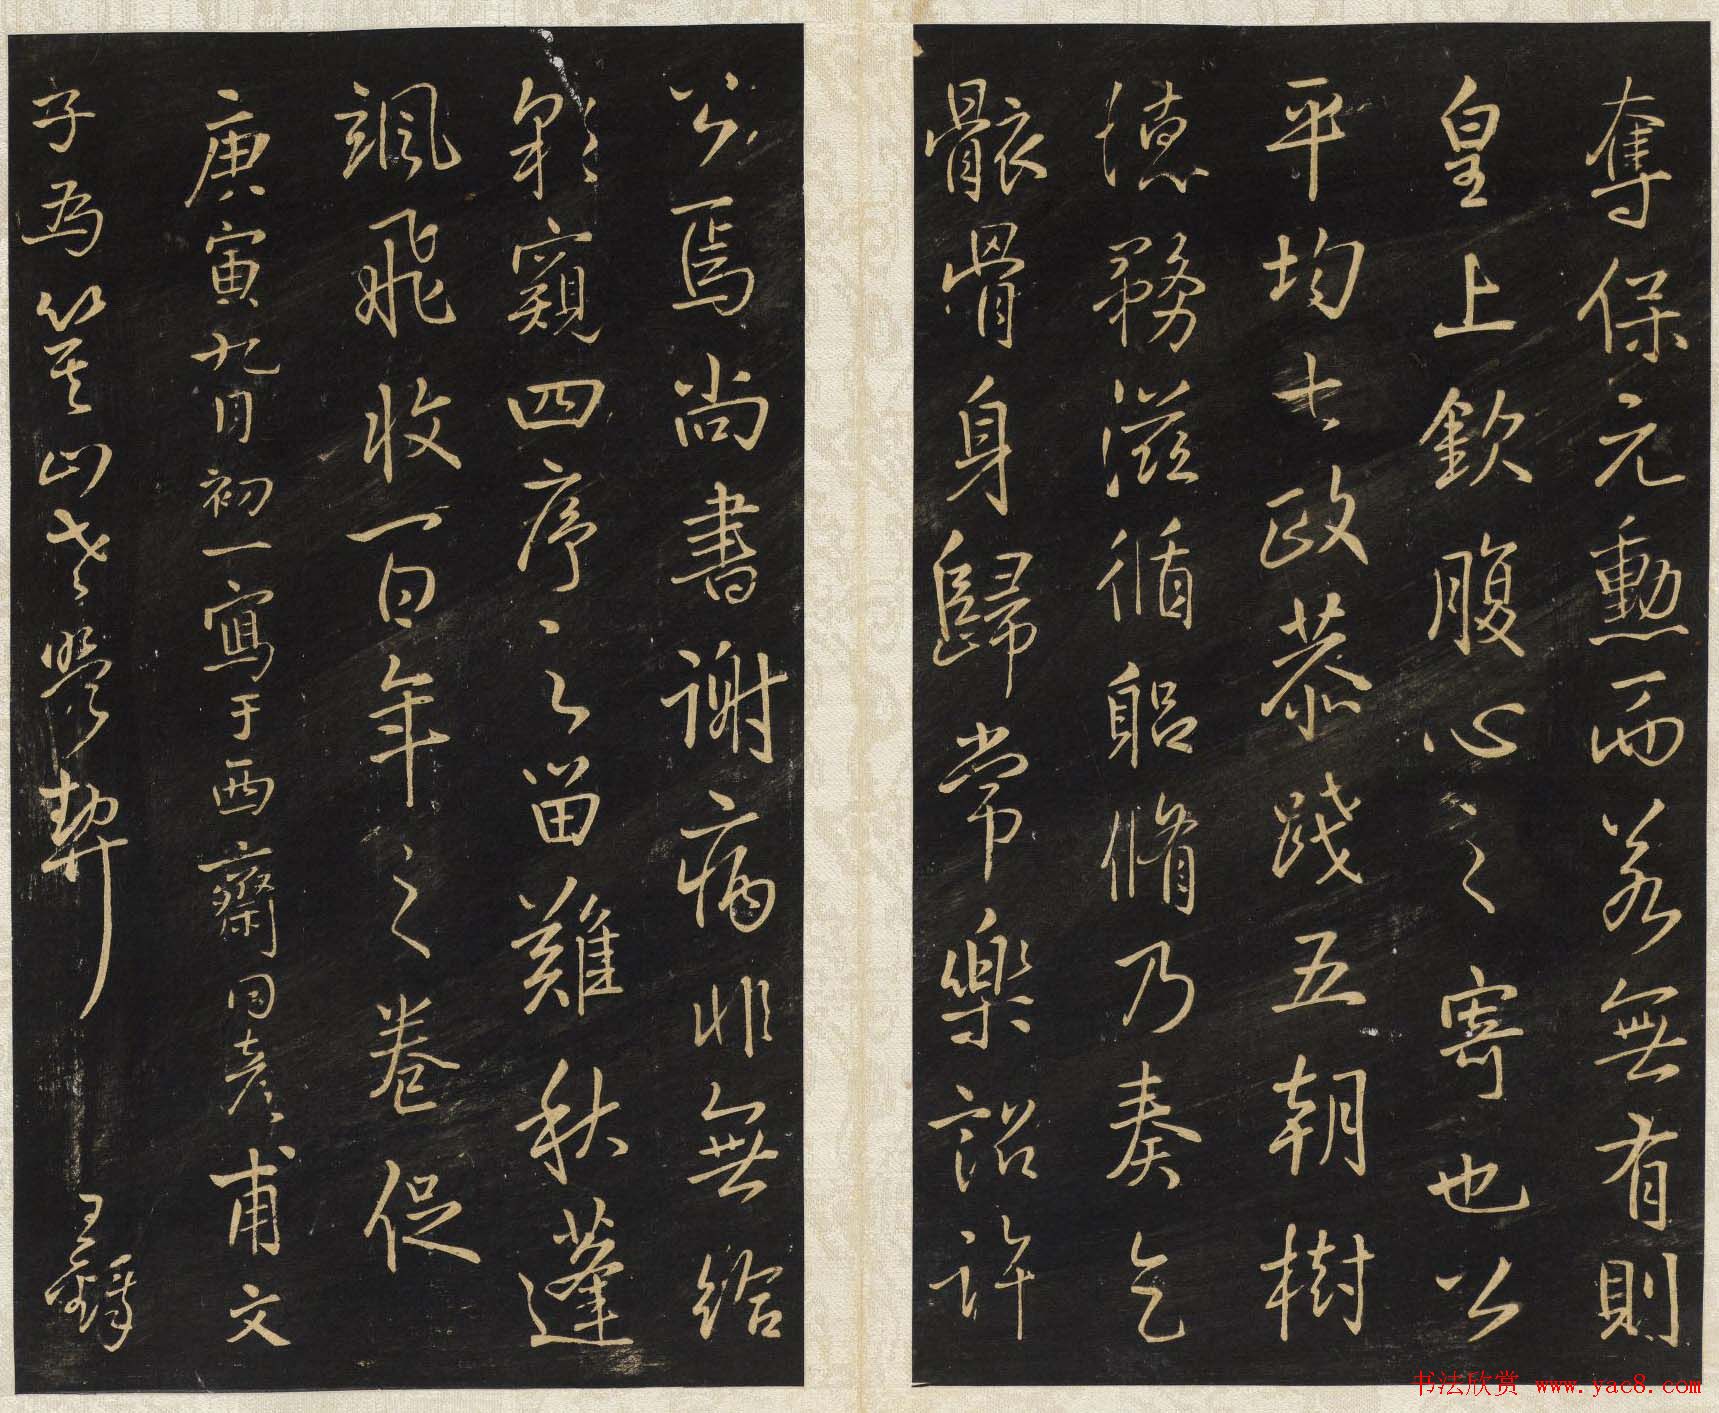 奪保元勳而若無有則
皇上欽腹心之寄也公
平均七政恭踐五朝樹
德務滋循躬脩乃奏乞
骸骨身歸常樂詔許
公焉尚書謝病非無給
窺四序之留難秋蓬
飄飛收一百年之卷促
庚寅九月初一寫于西齋同彥甫文
子為笠山老契
王鐸
书法欣赏 www.yac8.com